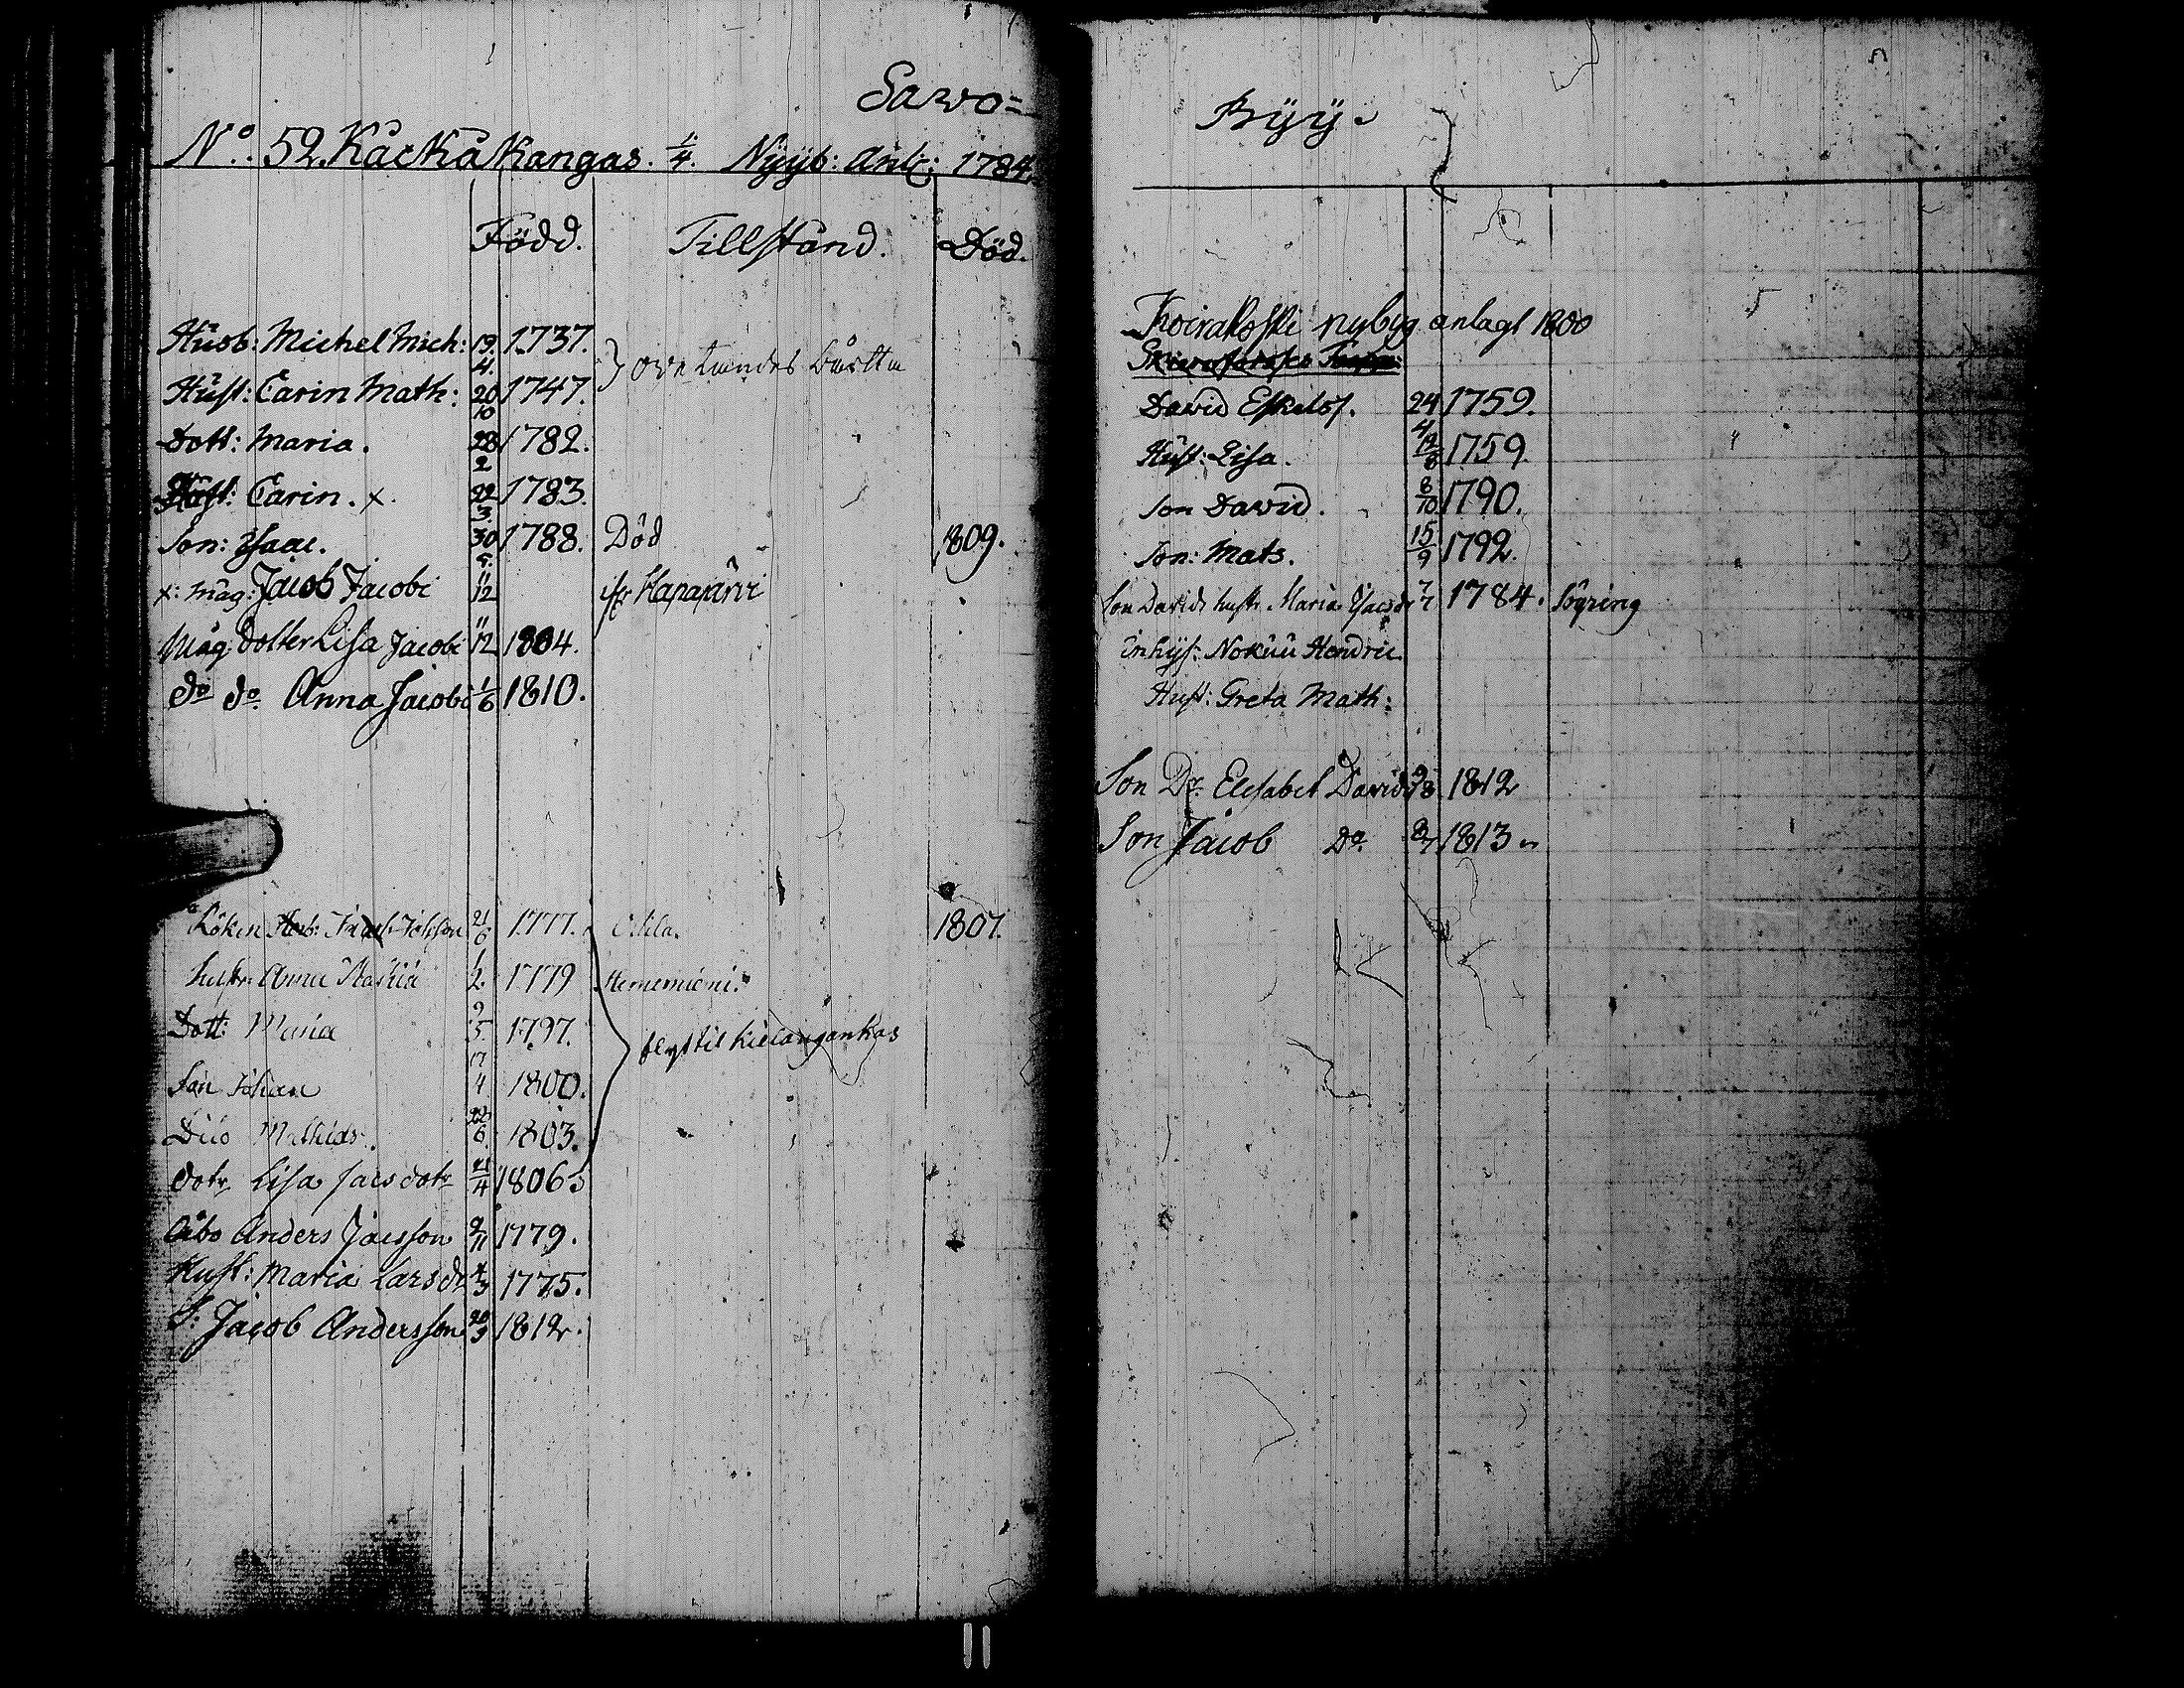 Sawo=
No: 52. Käckäkangas. 1/4. Nÿyb: Anl: 1784.
Född. Tillstånd. Död.
Husb: Michel Mich: 19/4. 1737.
Hust: Carin Math: 20/10 1747.
Dott: Maria. 28/2 1782.
Carin. x. 22/3. 1783.
Son: Isaac. 30/5. 1788. Död 1809.
x: Måg: Jacob Jacobi 11/12
Måg: dotter Lisa Jacobi 11/12 1804.
do do Anna Jacobi 1/6 1810.
21/6 1777. 1807.
hustr: Anna 1/2. 1779
Dott: Maria 9/5. 1797. flyt til
Son Johan 17/4 1800.
Mathias. 6. 1803.
dotr Lisa Jacs dotr 21/4 1806
Åbo Anders Jacsson 9/11 1779.
Hust: Maria Lars dr 4/3 1775.
S: Jacob Andersson 20/3 1812.
Byÿ.
Koirakoski nybyg anlagt 1800
David Eskelss. 24/4 1759.
Hust: Lisa. 12/8 1759
Son David. 8/10 1790.
Son: Mats. 15/9 1792.
Son Davids hustr Maria 7/7 1784.
Inhys: Nokuu Hendric
Hust: Greta Math:
Son Dr. Elisabet Davids 1812
Son Jacob Do. 8/7 1813
11